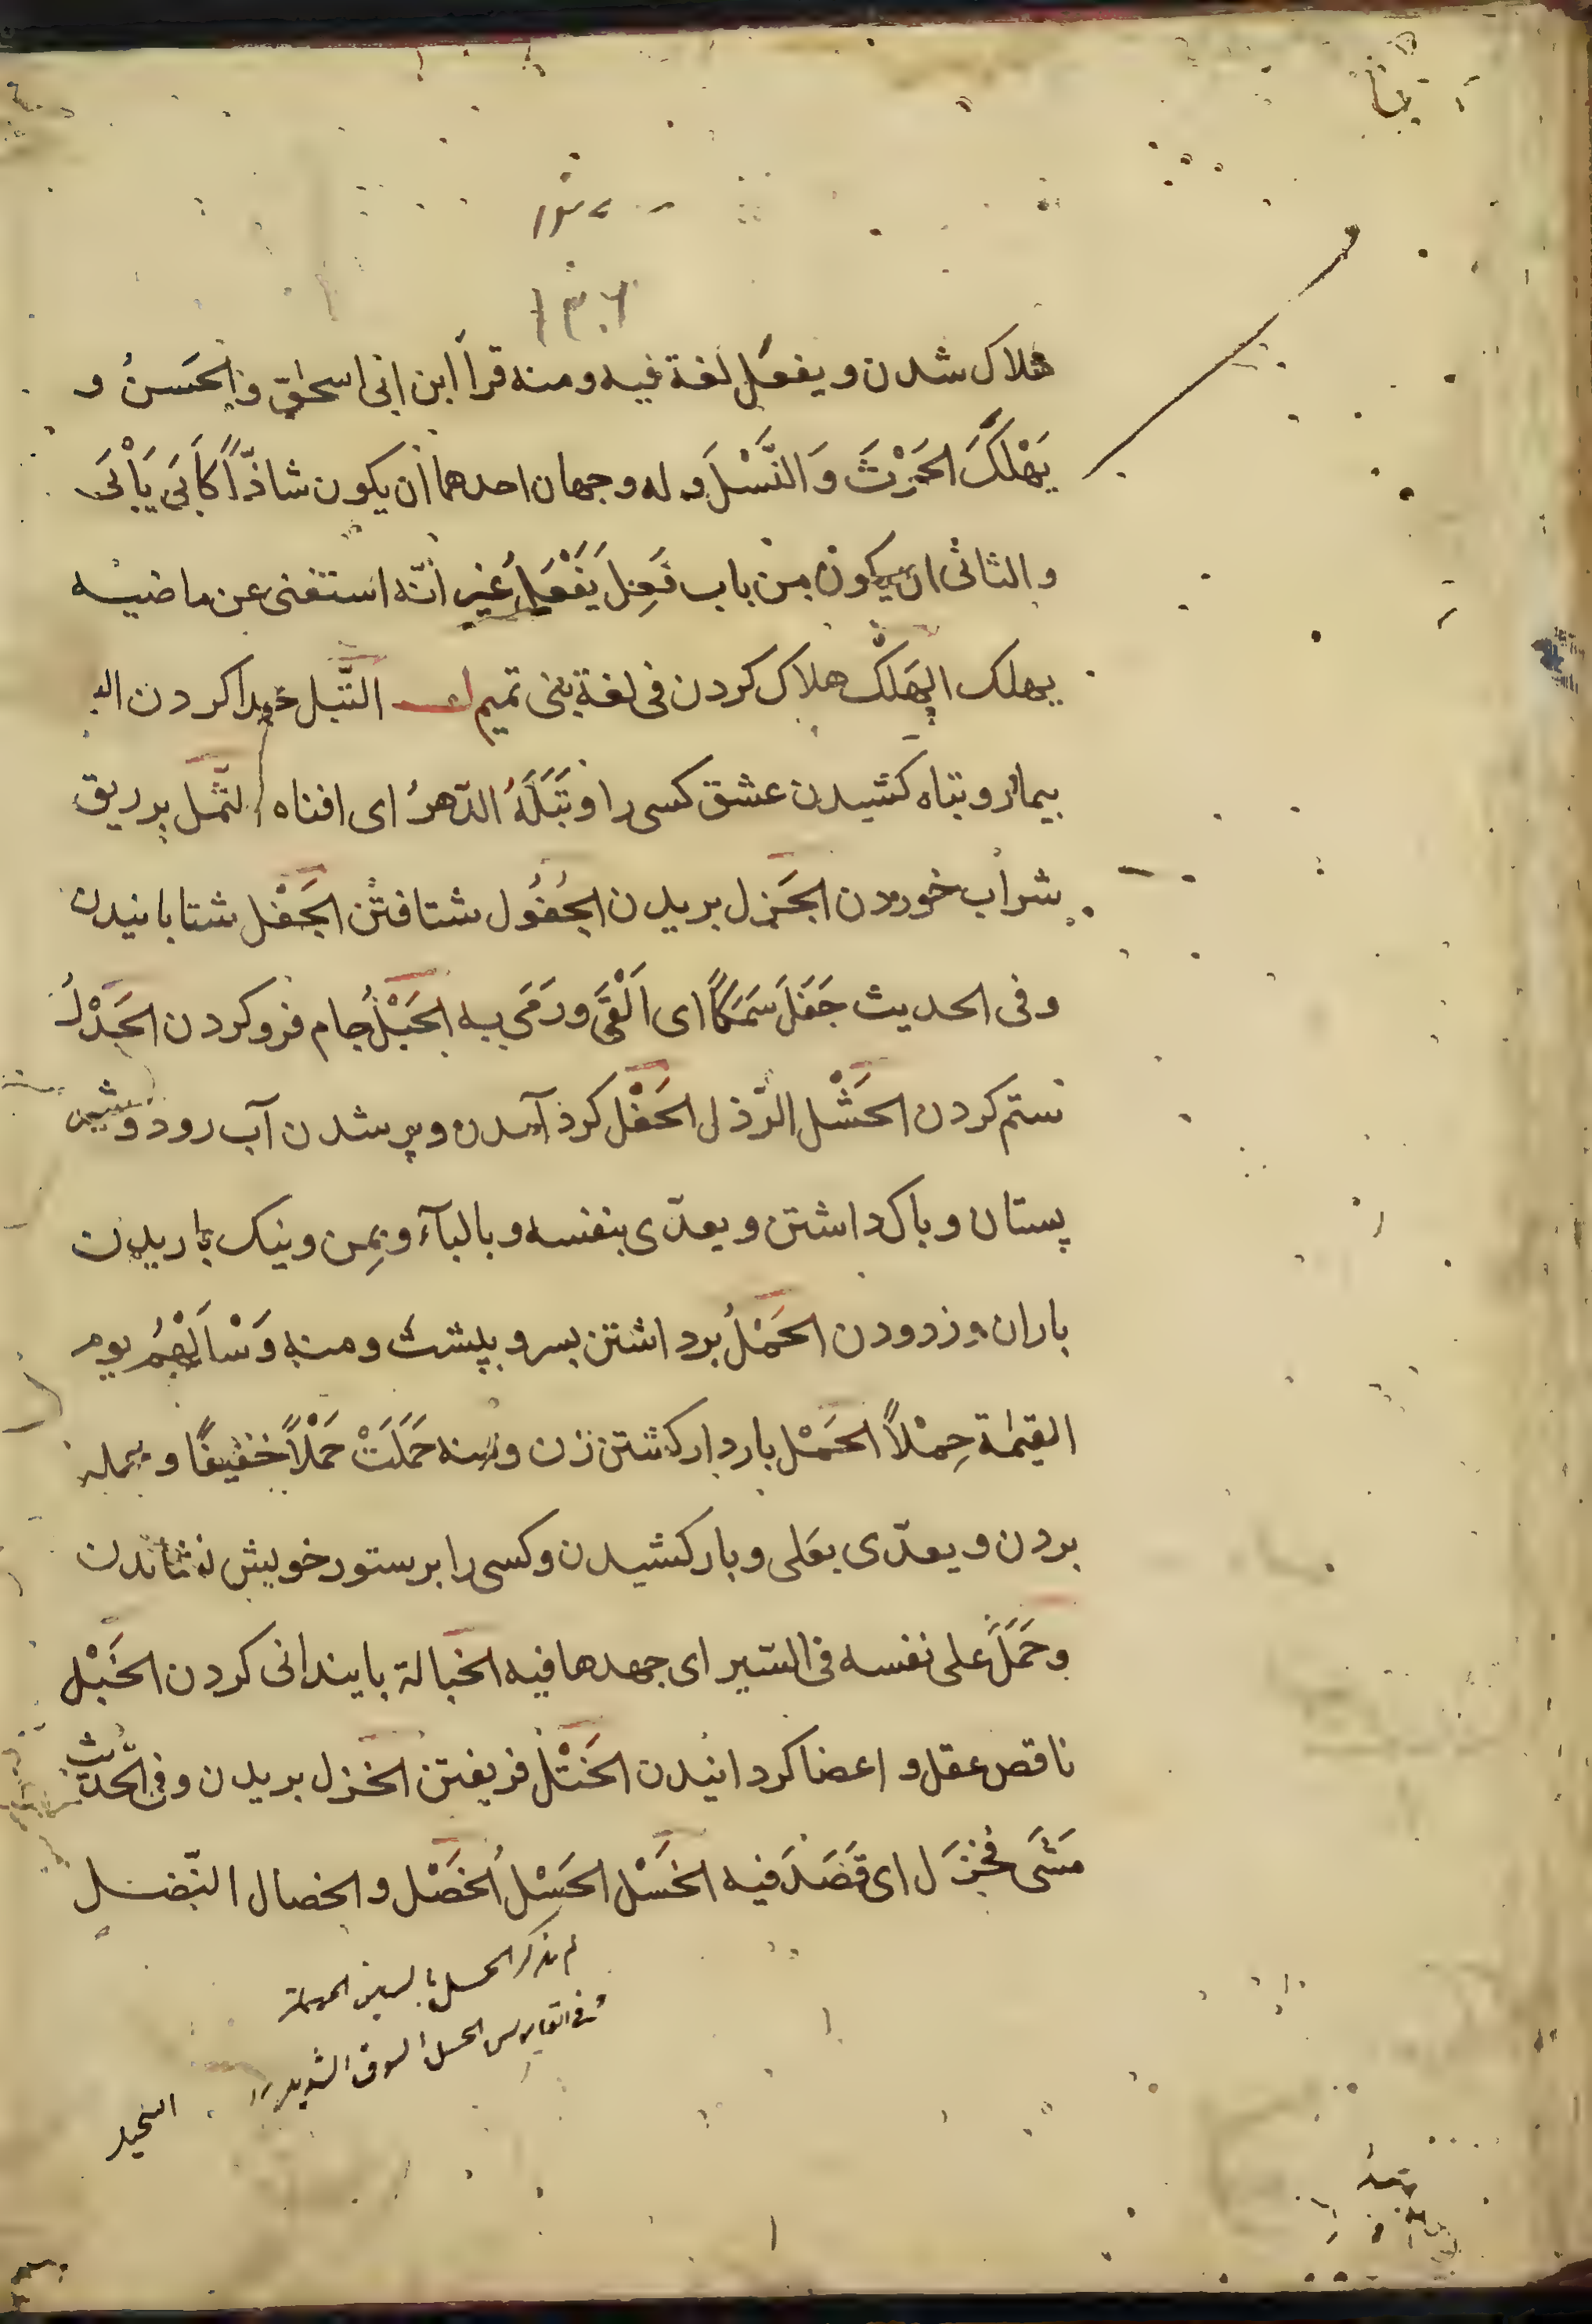 ۱۳۰۶
هلاک شدن و یفعَل لغة فیه و منه قرأ ابن ابی اسحٰق و الحَسنُ و
یَهْلَکَ الحَرْثَ وَ النَّسْلَ و له وجهان احدهما أن یکون شاذّاً کَأَبَی یَأْبَی
و الثانی ان یکون من باب فَعِلَ یَفْعَلُ غیر انّه استغنی عن ماضیه
بهلک الهَلْک هلاک کردن فی لغة بنی تمیم التَّبْل کردن
بیمار و تباه کشیدن عشق کسی را و تَبَلَهُ الدّهرُ ای افناه الثَّمْل بر ریق
شراب خوردن الجَزل بریدن الجُفُول شتافتن الجَفْل شتابانیدن
و فی الحدیث جَفَلَ سَمَکًا ای اَلْقَی و رَمَی به الحَبْلُ جام فرو کردن الحَدْلُ
ستم کردن الحَشْل الرّذل الحَفْل کرد آمدن و پر شدن آب رود و شیر
پستان و باک داشتن و یعدّی بنفسه و بالبآء و بمِن و نیک باریدن
باران و زدودن الحَمْلُ برداشتن بسر و بپشت و منه وَ سْآءَ لَهُمْ یوم
القیٰمة حِمْلاً الحَمْل باردار کشتن زن و منه حَمَلَتْ حَمْلاً خَفِیفًا و بحمله
بردن و یعدّی بعَلی و بار کشیدن و کسی را بر ستور خویش نشاندن
و حَمَلَ علی نفسه فی السّیر ای جهدها فیه الخبالة بایندانی کردن الخَبْل
ناقص عقل و اعضا کردانیدن الخَتْلُ فریفتن الخزل بریدن و فی الحدیث
مَشَی فخزَل ای قَصَدَ فیه الخَسْل الحَسْلُ الخَصْل و الخصال النّضل
لم یذکر الحسل بالسین المهملة
و فی القاموس الحسل السوق الشدید